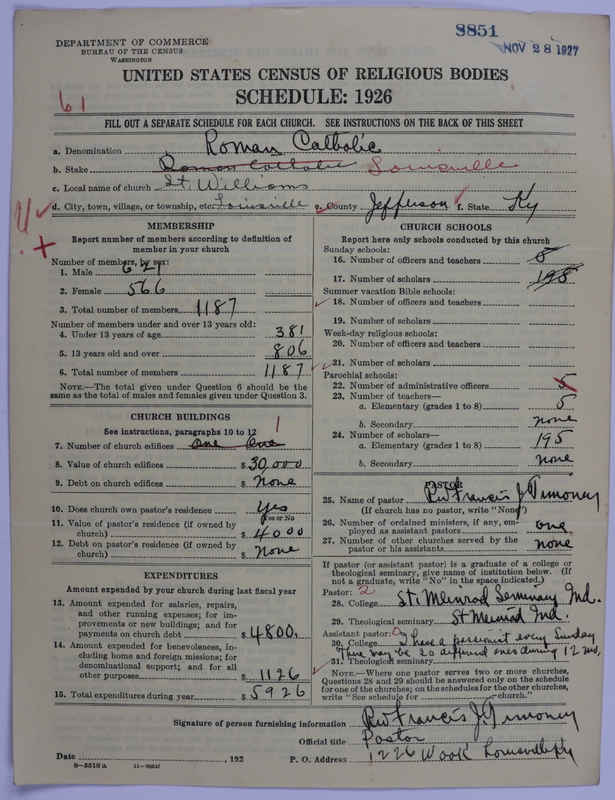 8851
NOV 28 1927
DEPARTMENT OF COMMERCE
BUREAU OF THE CENSUS
WASHINGTON
UNITED STATES CENSUS OF RELIGIOUS BODIES
SCHEDULE: 1926
61
FILL OUT A SEPARATE SCHEDULE FOR EACH CHURCH. SEE INSTRUCTIONS ON THE BACK OF THIS SHEET
a. Denomination Roman Catholic
b. Stake Roman Catholic Louisville
c. Local name of church St. Williams
d. City, town, village, or township, etc. Louisville e. County Jefferson f. State Ky
MEMBERSHIP
Report number of members according to definition of
member in your church
Number of members, by sex:
1. Male 621
2. Female 566
3. Total number of members 1187
Number of members under and over 13 years old:
4. Under 13 years of age 381
5. 13 years old and over 806
6. Total number of members 1187
NOTE.—The total given under Question 6 should be
same as the total of males and females given under Question 3.
CHURCH BUILDINGS
See instructions, paragraphs 10 to 12
7. Number of church edifices one One 1
8. Value of church edifices $ 30,000
9. Debt on church edifices $ None
10. Does church own pastor's residence? Yes
Yes or No
11. Value of pastor's residence (if owned by
church) $ 4000
12. Debt on pastor's residence (if owned by
church) $ None
EXPENDITURES
Amount expended by your church during last fiscal year
13. Amount expended for salaries, repairs,
and other running expenses; for im-
provements or new buildings; and for
payments on church debt $ 4800.
14. Amount expended for benevolences, in-
cluding home and foreign missions; for
denominational support; and for all
other purposes $ 1126
15. Total expenditures during year $ 5926
CHURCH SCHOOLS
Report here only schools conducted by this church
Sunday schools:
16. Number of officers and teachers 5
17. Number of scholars 195
Summer vacation Bible schools:
18. Number of officers and teachers
19. Number of scholars
Week-day religious schools:
20. Number of officers and teachers
21. Number of scholars
Parochial schools:
22. Number of administrative officers 5
23. Number of teachers—
a. Elementary (grades 1 to 8) 5
b. Secondary none
24. Number of scholars—
a. Elementary (grades 1 to 8) 195
b. Secondary none
PASTOR
25. Name of pastor Rev Francis J Timoney
(If church has no pastor, write "None")
26. Number of ordained ministers, if any, em-
ployed as assistant pastors one
27. Number of other churches served by the
pastor or his assistants none
If pastor (or assistant pastor) is a graduate of a college or
theological seminary, give name of institution below. (If
not a graduate, write "No" in the space indicated.)
Pastor: 2
28. College St. Meinrad Seminary Ind.
29. Theological seminary St Meinrad Ind.
Assistant pastor: 0
30. College I have a assistant every Sunday
There may be 20 different ones during 12 mo,
31. Theological seminary
NOTE.—Where one pastor serves two or more churches,
Questions 28 and 29 should be answered only on the schedule
for one of the churches; on the schedules for the other churches,
write "See schedule for church."
Signature of person furnishing information Rev Francis J. Timoney
Official title Pastor
Date , 192 P. O. Address 1226 W Oak Louisville Ky
8—5519 a 11—9034f